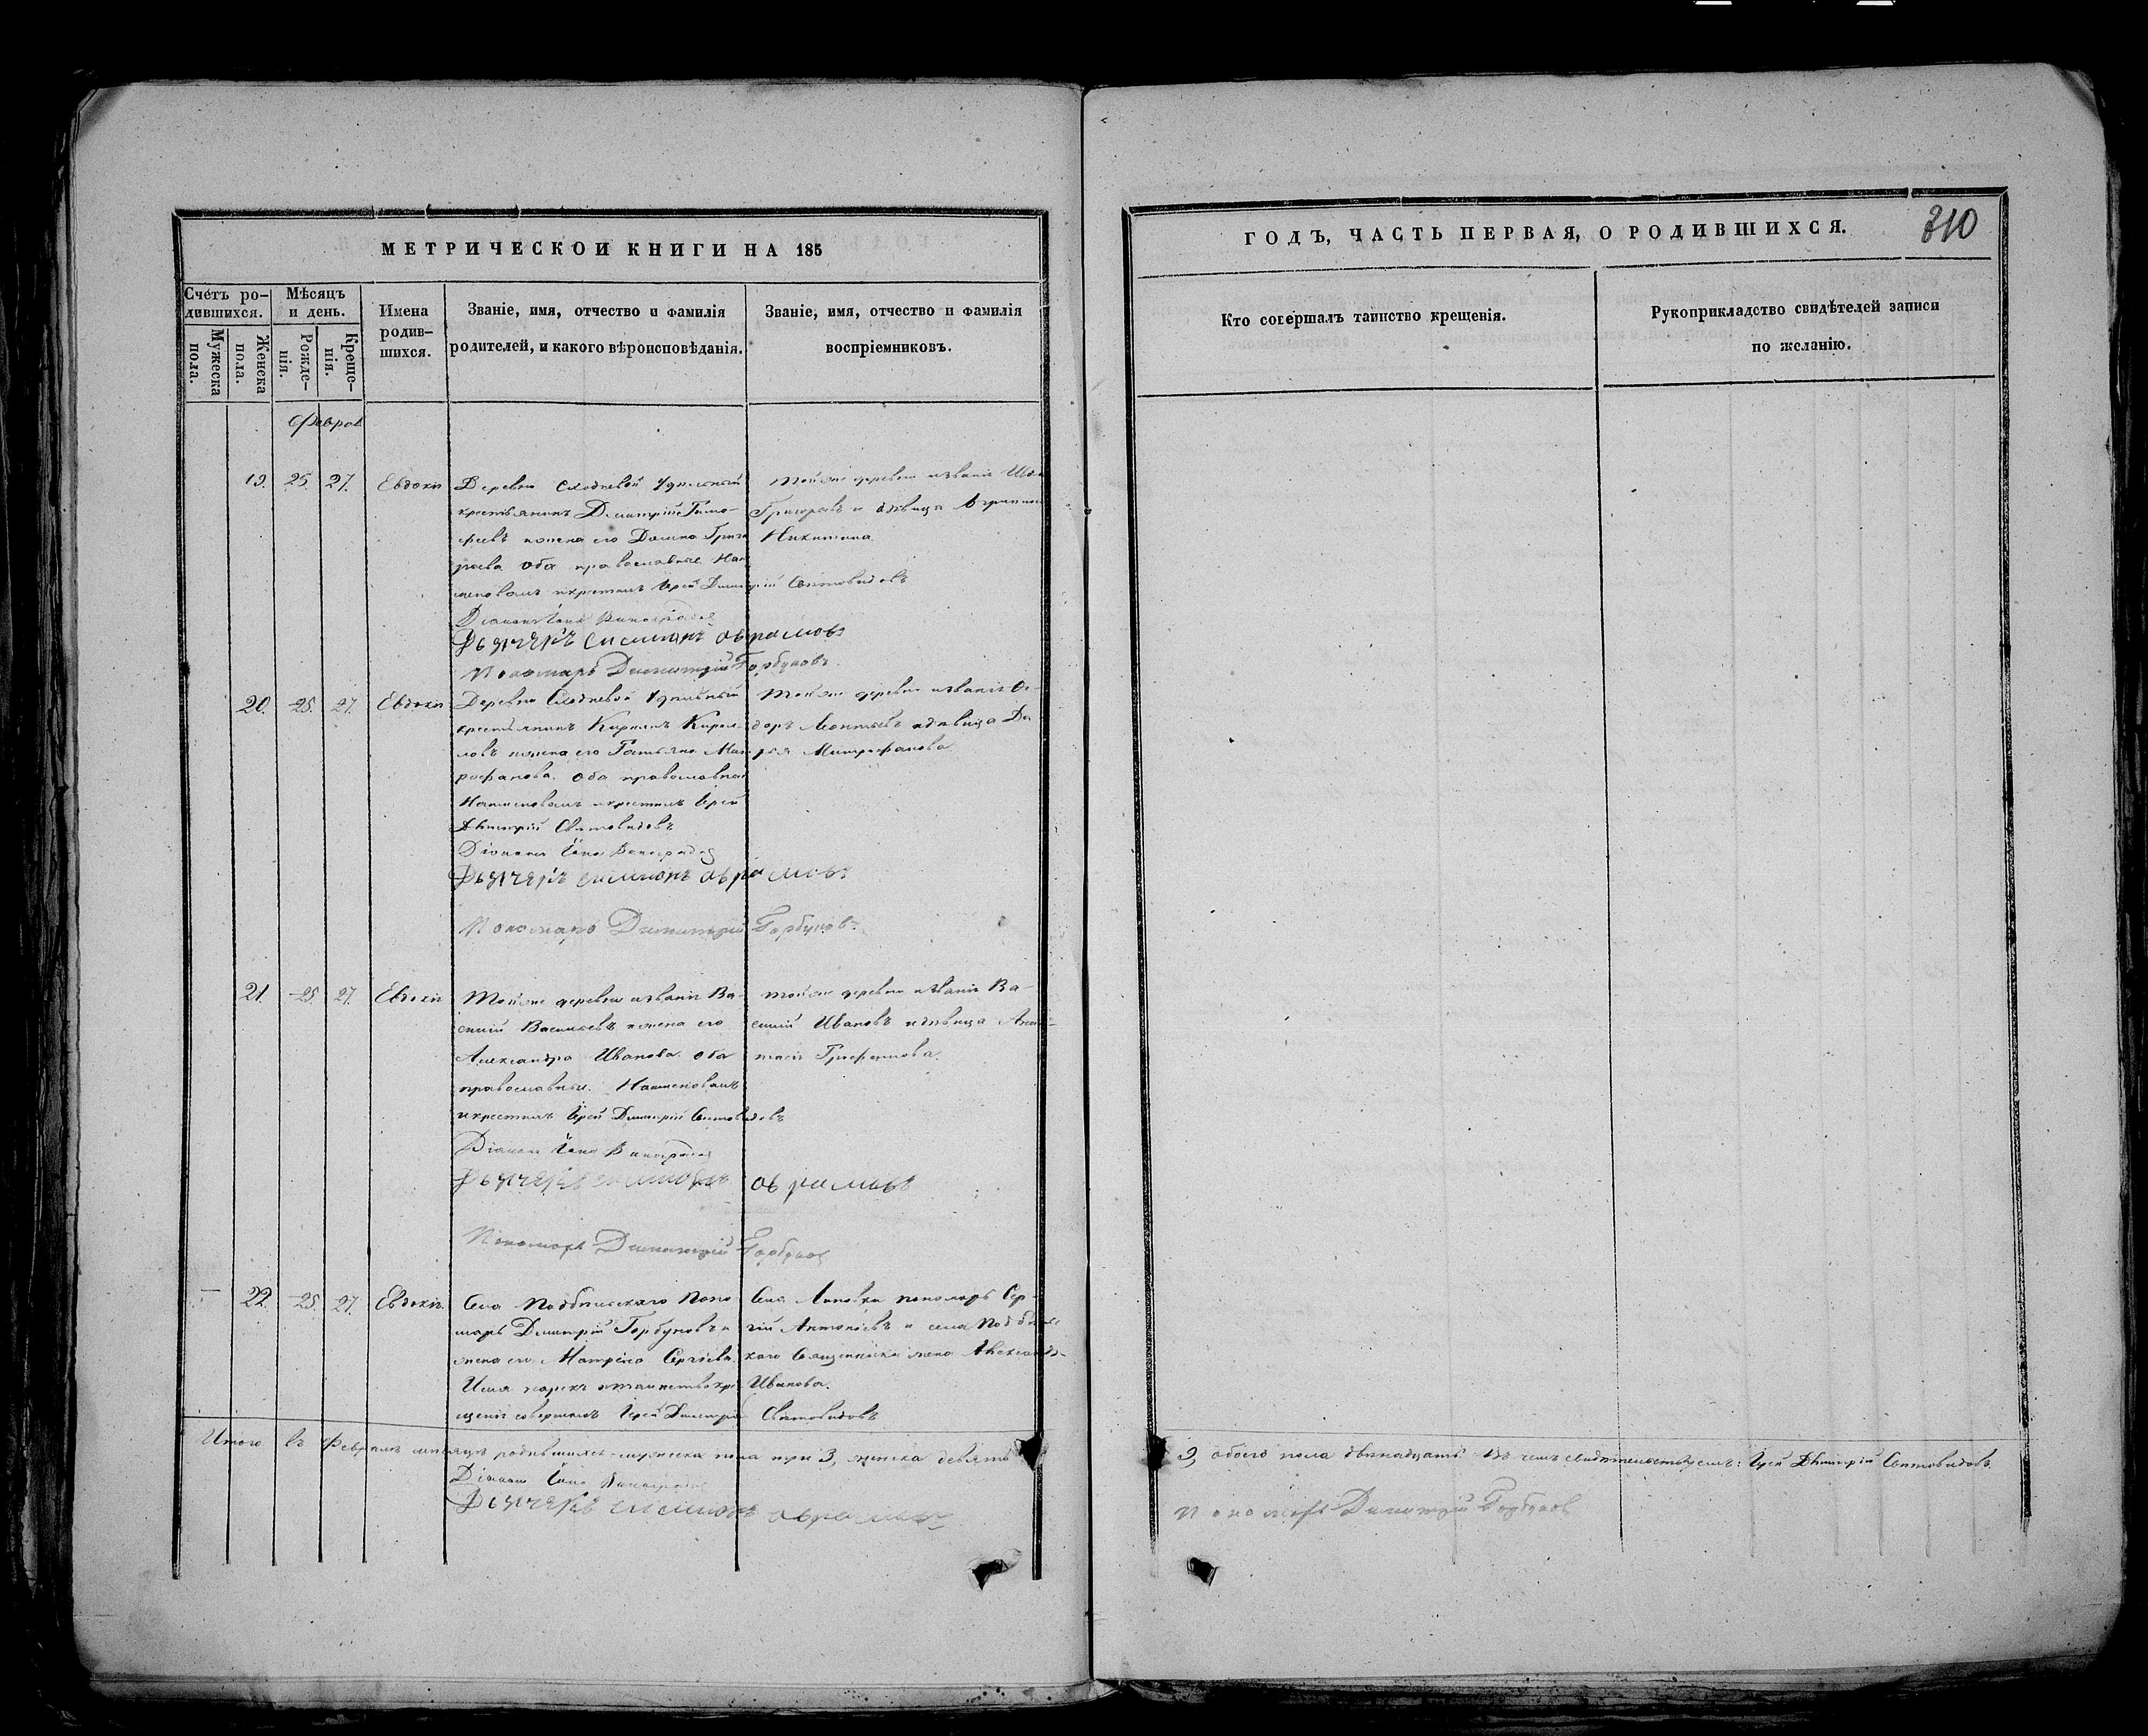 МЕТРИЧЕСКОЙ КНИГИ НА 185
Счетъ ро-
дившихся.
Мужеска
пола.
Женска
пола.
Мѣсяцъ
и день.
Рожде-
нія.
Креще-
нія.
Имена
родив-
шихся.
Званіе, имя, отчество и фамилія
родителей, и какого вѣроисповѣданія.
Званіе, имя, отчество и фамилія
воспріемниковъ.
Феврал
19. 25. 27. Евдокія
Деревни Удѣльный
крестьянинъ Димитрій Тимо-
феевъ и жена его Домна Григо
рьева оба православные. Наи
меновалъ и крестилъ Іерей Димитрій Святовидовъ
Діаконъ Іоаннъ Виноградовъ
Дьячекъ Симионъ Аврамовъ
Пономарь Димитрій Горбуновъ
Той же деревни и званія Иванъ
Григорьевъ и дѣвица Агрипина
Никитина
20. 25. 27. Евдокія
Деревни Удѣльный
крестьянинъ Кирилъ Кирил-
ловъ и жена его Татьяна Мит
рофанова. Оба православные
Наименовалъ и крестилъ Іерей
Димитрій Святовидовъ
Діаконъ Іоаннъ Виноградовъ
Дьячекъ Симионъ Аврамовъ
Пономарь Димитрій Горбуновъ.
Той же деревни и званія Ѳе-
доръ Леонтьевъ и дѣвица Да
рья Митрофанова
21. 25. 27. Евдокія
Той же деревни и званія Ва-
силій Васильевъ и жена его
Александра Иванова. Оба
православные. Наименовалъ
и крестилъ Іерей Димитрій Святовидовъ
Діаконъ Іоаннъ Виноградовъ
Дьячекъ Симионъ Аврамовъ
Пономарь Димитрій Горбуновъ
Той же деревни и званія Ва-
силій Ивановъ и дѣвица Анас-
тасія
— 22. 25. 27. Евдокія.
Села Поно
марь Димитрій Горбуновъ и
жена его Матрена Сергіева
Имя нарекъ и таинство кре
щенія совершилъ Іерей Димитрій Святовидовъ
Села пономарь Сер-
гій Антоніевъ и села
каго Священника жена Александр-
Иванова.
Итого въ Февралѣ мѣсяцѣ родившихся мужеска пола три 3, женска девять
Діаконъ Іоаннъ Виноградовъ
Дьячекъ Симионъ Аврамовъ
ГОДЪ, ЧАСТЬ ПЕРВАЯ, О РОДИВШИХСЯ.
310
Кто совершалъ таинство крещенія.
Рукоприкладство свидѣтелей записи
по желанію.
9, обоего пола двѣнадцать. Въ чемъ свидѣтельствуемъ: Іерей Димитрій Святовидовъ.
Пономарь Димитрій Горбуновъ